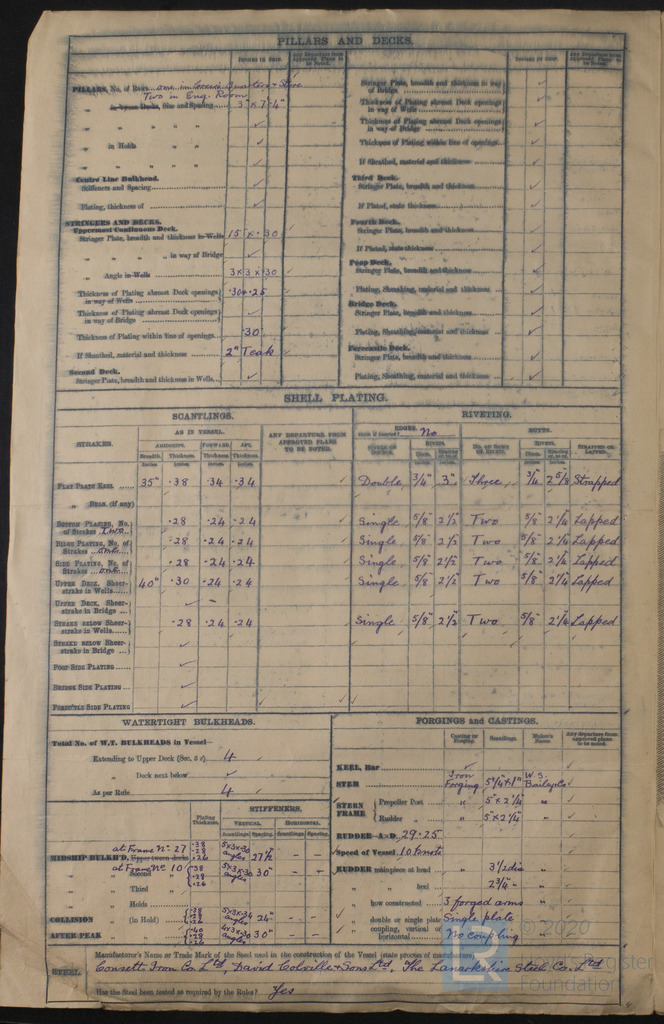 PILLARS AND DECKS.
FITTED IN SHIP.
Any Departure from Approved Plans to be Noted.
FITTED IN SHIP.
Any Departure from Approved Plans to be Noted.
PILLARS, No. of Rows
Two in Eng. Room
in Upper Decks, Size and Spacing 3" x 7'-4"
in Holds
Centre Line Bulkhead.
Stiffeners and Spacing
Plating, thickness of
STRINGERS AND DECKS.
Uppermost Continuous Deck.
Stringer Plate, breadth and thickness in Wells 15 x .30
" in way of Bridge
" Angle in Wells 3 x 3 x .30
Thickness of Plating abreast Deck openings in way of Wells .30 + .25
Thickness of Plating abreast Deck openings in way of Bridge
Thickness of Plating within line of openings .30
If Sheathed, material and thickness 2" Teak
Second Deck.
Stringer Plate, breadth and thickness in Wells
Stringer Plate, breadth and thickness in way of Bridge
Thickness of Plating abreast Deck openings in way of Wells
Thickness of Plating abreast Deck openings in way of Bridge
Thickness of Plating within line of openings
If Sheathed, material and thickness
Third Deck.
Stringer Plate, breadth and thickness
If Plated, state thickness
Fourth Deck.
Stringer Plate, breadth and thickness
If Plated, state thickness
Poop Deck.
Stringer Plate, breadth and thickness
Plating, Sheathing, material and thickness
Bridge Deck.
Stringer Plate, breadth and thickness
Plating, Sheathing, material and thickness
Forecastle Deck.
Stringer Plate, breadth and thickness
Plating, Sheathing, material and thickness
SHELL PLATING.
SCANTLINGS.
RIVETING.
STRAKES.
AS IN VESSEL.
AMIDSHIPS. FORWARD. AFT.
Breadth. Thickness. Thickness. Thickness.
ANY DEPARTURE FROM APPROVED PLANS TO BE NOTED.
EDGES. No
BUTTS.
RIVETS.
No. OF ROWS OF RIVETS.
RIVETS.
STRAPPED OR LAPPED.
FLAT PLATE KEEL 35" .38 .34 .34 Double 3/4" 3" Three 3/4 2 5/8 Strapped
" DBLG. (if any)
BOTTOM PLATING, No. of Strakes Two .28 .24 .24 Single 5/8 2 1/2 Two 5/8 2 1/4 Lapped
BILGE PLATING, No. of Strakes one .28 .24 .24 Single 5/8 2 1/2 Two 5/8 2 1/4 Lapped
SIDE PLATING, No. of Strakes one .28 .24 .24 Single 5/8 2 1/2 Two 5/8 2 1/4 Lapped
UPPER DECK, Sheerstrake in Wells 40" .30 .24 .24 Single 5/8 2 1/2 Two 5/8 2 1/4 Lapped
UPPER DECK, Sheerstrake in Bridge
STRAKE BELOW Sheerstrake in Wells .28 .24 .24 Single 5/8 2 1/2 Two 5/8 2 1/4 Lapped
STRAKE BELOW Sheerstrake in Bridge
POOP SIDE PLATING
BRIDGE SIDE PLATING
FORECASTLE SIDE PLATING
WATERTIGHT BULKHEADS.
Total No. of W.T. BULKHEADS in Vessel—
Extending to Upper Deck 4
" Deck next below
As per Rule 4
Plating Thickness.
STIFFENERS.
VERTICAL. HORIZONTAL.
Scantlings. Spacing. Scantlings. Spacing.
at Frame No. 27
MIDSHIP BULKH'D, Upper tween decks angles 27 1/2 - -
at Frame No. 10
" Second " angles 30" - -
" Third "
" Holds
COLLISION " (in Hold) angles 24" - -
AFTER PEAK " angles 30" - -
FORGINGS and CASTINGS.
Casting or Forging. Scantlings. Maker's Name. Any departure from approved plans to be noted.
KEEL, Bar
STEM Iron Forging 5 1/4 x 1" W. S. Bailey & Co
STERN FRAME Propeller Post " 5" x 2 1/4 "
Rudder " " 5 x 2 1/4 "
RUDDER—A x D. 29.25
Speed of Vessel 10 knots
RUDDER mainpiece at head " 3 1/2 dia "
" heel " 2 3/4 " "
" how constructed 3 forged arms
" double or single plate Single plate
" coupling, vertical or horizontal No coupling
STEEL.
Manufacturer's Name or Trade Mark of the Steel used in the construction of the Vessel (state process of manufacture)
Consett Iron Co. Ltd, David Colville & Sons Ltd, The Lanarkshire Steel Co. Ltd
Has the Steel been tested as required by the Rules? Yes
LR
© 2020
Lloyd's Register
Foundation